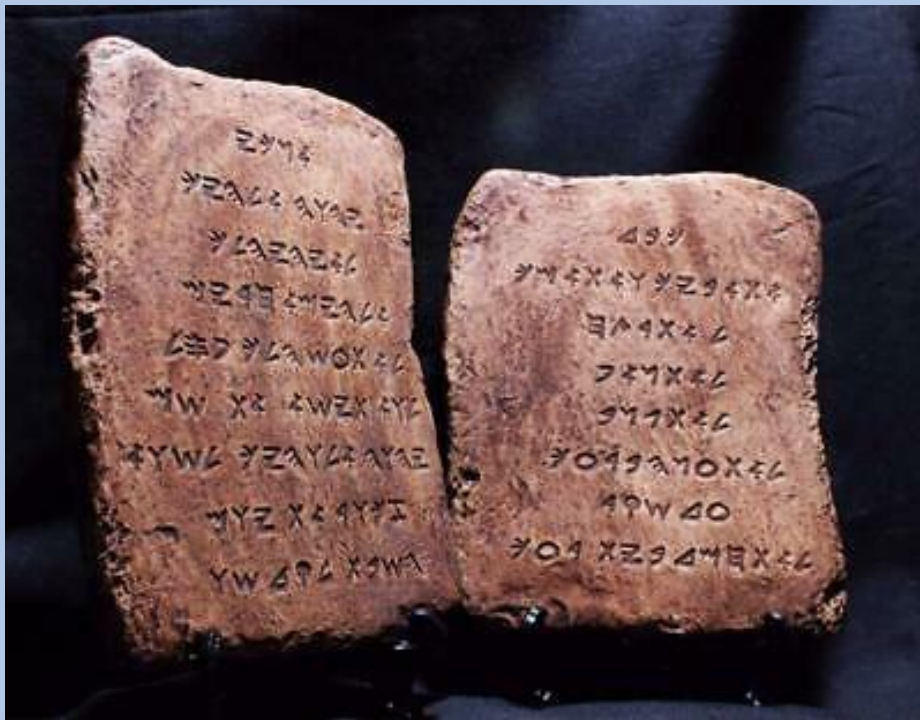 𐤀𐤍𐤊𐤉
𐤉𐤄𐤅𐤄 𐤀𐤋𐤄𐤉𐤊
𐤋𐤀 𐤉𐤄𐤉𐤄 𐤋𐤊
𐤀𐤋𐤄𐤉𐤌 𐤀𐤇𐤓𐤉𐤌
𐤋𐤀 𐤕𐤏𐤔𐤄 𐤋𐤊 𐤐𐤎𐤋
𐤋𐤀 𐤕𐤔𐤀 𐤀𐤕 𐤔𐤌
𐤉𐤄𐤅𐤄 𐤀𐤋𐤄𐤉𐤊 𐤋𐤔𐤅𐤀
𐤆𐤊𐤅𐤓 𐤀𐤕 𐤉𐤅𐤌
𐤄𐤔𐤁𐤕 𐤋𐤒𐤃𐤔𐤅
𐤊𐤁𐤃
𐤀𐤕 𐤀𐤁𐤉𐤊 𐤅𐤀𐤕 𐤀𐤌𐤊
𐤋𐤀 𐤕𐤓𐤑𐤇
𐤋𐤀 𐤕𐤍𐤀𐤐
𐤋𐤀 𐤕𐤂𐤍𐤁
𐤋𐤀 𐤕𐤏𐤍𐤄 𐤁𐤓𐤏𐤊
𐤏𐤃 𐤔𐤒𐤓
𐤋𐤀 𐤕𐤇𐤌𐤃 𐤁𐤉𐤕 𐤓𐤏𐤊